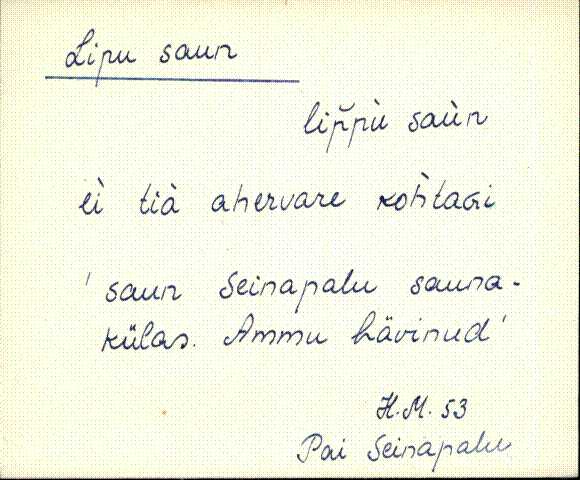 Lipu saun
lip̆pù saùn
eì tià ahervare kohtaGi
' saun Seinapalu sauna-
külas. Ammu hävinud '
H.M. 53
Pai Seinapalu